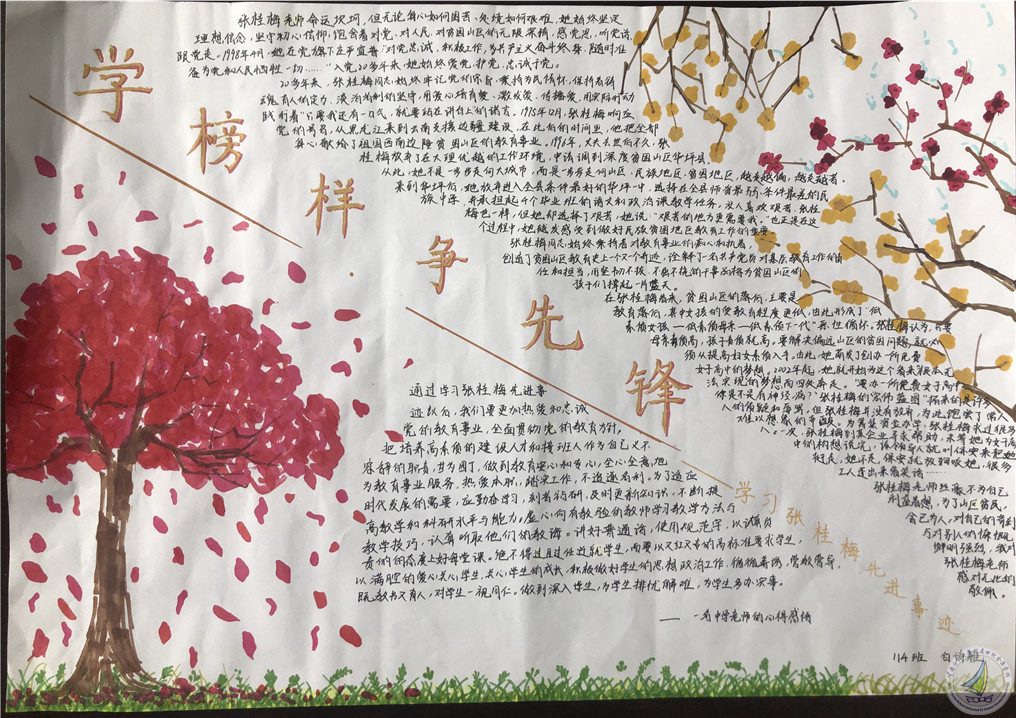 学榜样争先锋
张桂梅老师命运坎坷，但无论身心如何困苦、处境如何艰难，她始终坚定
理想信念，坚守初心信仰，饱含着对党、对人民、对贫困山区的无限深情，感党恩，听党话，
跟党走。1998年4月，她在党旗下庄严宣誓"对党忠诚，积极工作，为共产主义奋斗终身，随时准
备为党和人民牺牲一切……"入党20多年来，她始终爱党、护党、忠诚于党。
20多年来，张桂梅同志始终牢记党的宗旨，秉持为民情怀，保持着铸
魂育人的定力、淡泊名利的坚守，用爱心培育爱、激发爱、传播爱，用实际行动
践行着"只要我还有一口气，就要站在讲台上"的诺言。1975年12月，张桂梅响应
党的号召，从黑龙江来到云南支援边疆建设，在此后的时间里，他把全部
身心献给了祖国西南边陲贫困山区的教育事业。1996年，丈夫去世后不久，张
桂梅放弃了在大理优越的工作环境，申请调到深度贫困山区华坪县，
从此，她不是一步步走向大城市，而是一步步走向山区、民族地区、贫困地区，越走越偏，越走越远，
来到华坪后，她放弃进入全县条件最好的华坪一中，选择在全县师资最弱、条件最差的民
族中学，并承担起4个毕业班的语文和政治课教学任务，没人喜欢艰苦，张桂
梅也一样，但她却选择了艰苦，她说："艰苦的地方更需要我。"也正是在这
个过程中，她越发感受到做好民族贫困地区教育工作的重要。
张桂梅同志始终秉持着对教育事业的初心和执着，
创造了贫困山区教育史上一个又一个奇迹，诠释了一名共产党员对基层教育工作的责
任和担当，用坚韧不拔、不屈不挠的干事品格为贫困山区的
孩子们撑起一片蓝天。
在张桂梅看来，贫困山区的落后，主要是
教育落后，其中女孩的受教育程度更低，由此形成了"低
素质女孩—低素质母亲—低素质下一代"恶性循环，张桂梅认为，只要
母亲素质高，孩子素质就高。要解决偏远山区的贫困问题，就必
须从提高妇女素质入手。由此，她萌发了创办一所免费
女子高中的梦想，2002年起，她就开始为这个看来根本无
法实现的梦想而四处奔走。"要办一所免费女子高中，
你是不是有神经病？"张桂梅的宏伟蓝图，招来的是许多
人的质疑和嘲笑，但张桂梅并没有放弃，为此饱尝了常人
难以想象的辛酸。为筹集资金办学，张桂梅求过很多
人。一次，张桂梅到某企业寻求帮助，未等她为女子高
中的构想说完，该相关人就叫保安来把她
撵走，她不走，保安就放狗咬她，很多
工人走出来看笑话……
张桂梅老师丝毫不为自己
利益着想，为了山区贫民，
舍己为人，对自己的苛刻
与对别人的慷慨
鲜明强烈，我对
张桂梅老师
感到无比的
敬佩。
通过学习张桂梅先进事
迹以后，我们要更加热爱和忠诚
党的教育事业，全面贯彻党的教育方针，
把培养高素质的建设人才和接班人作为自己义不
容辞的职责，甘为园丁，做到教育安心和专心，全心全意地
为教育事业服务，热爱本职，踏实工作，不追逐名利。为了适应
时代发展的需要，应勤奋学习，刻苦钻研，及时更新知识，不断提
高教学和科研水平与能力，虚心向有教验的教师学习教学方法与
教学技巧，认真听取他们的教诲。讲好普通话，使用规范字，以认真负
责的的态度上好每堂课。绝不得过且过任边就学生，而要以又红又专的高标准要求学生，
以满腔的爱心关心学生，关心学生的成长，积极做好学生的思想政治工作，循循善诱，管教管导，
既教书又育人，对学生一视同仁。做到深入学生，为学生排忧解难，为学生多办实事。
—— 一名中学老师的心得感悟
学习张桂梅先进事迹
114班